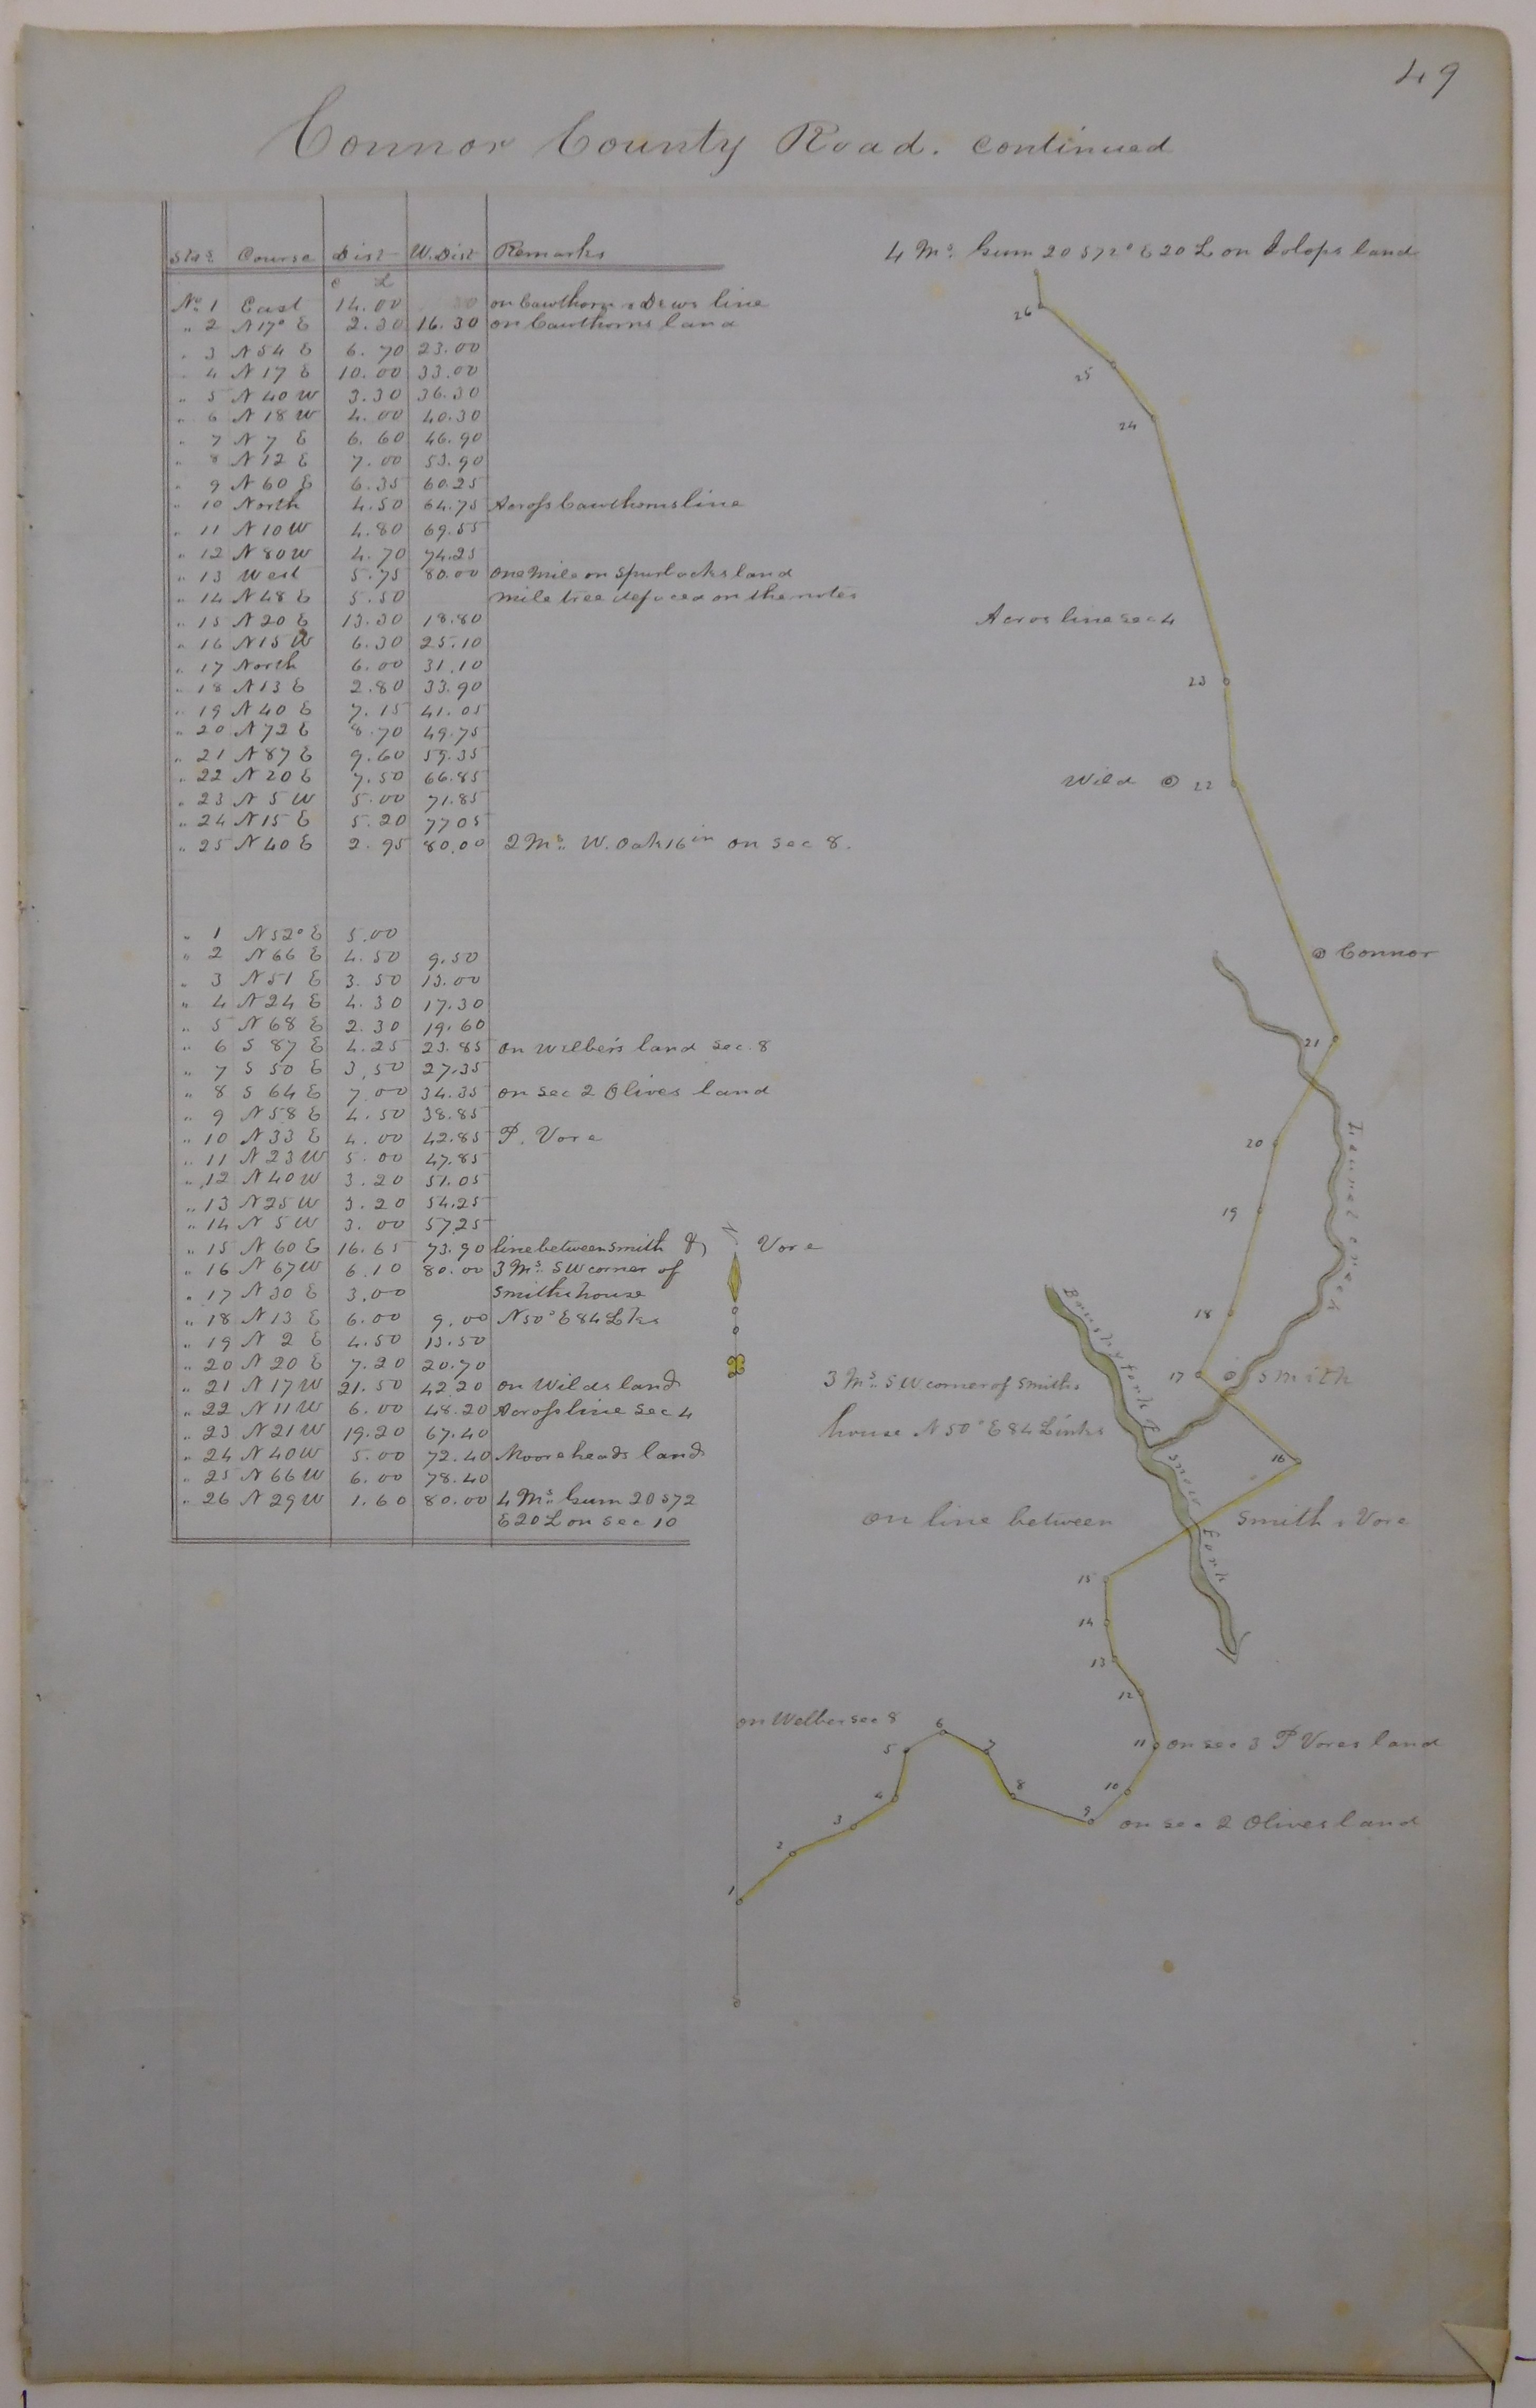 49
Connor County Road. continued
Stas. Course Dist W. Dist Remarks
C L
No. 1 East 14.00 on Cawthorn & Dews line
" 2 N 17° E 2.30 16.30 on Cawthorns land
" 3 N 54 E 6.70 23.00
" 4 N 17 E 10.00 33.00
" 5 N 40 W 3.30 36.30
" 6 N 18 W 4.00 40.30
" 7 N 7 E 6.60 46.90
" 8 N 12 E 7.00 53.90
" 9 N 60 E 6.35 60.25
" 10 North 4.50 64.75 Across Cawthorns line
" 11 N 10 W 4.80 69.55
" 12 N 80 W 4.70 74.25
" 13 West 5.75 80.00 one mile on Spurlocks land
" 14 N 48 E 5.50 mile tree defaced on the notes
" 15 N 20 E 13.30 18.80
" 16 N 15 W 6.30 25.10
" 17 North 6.00 31.10
" 18 N 13 E 2.80 33.90
" 19 N 40 E 7.15 41.05
" 20 N 72 E 8.70 49.75
" 21 N 87 E 9.60 59.35
" 22 N 20 E 7.50 66.85
" 23 N 5 W 5.00 71.85
" 24 N 15 E 5.20 77.05
" 25 N 40 E 2.95 80.00 2 Ms. W. Oak 16 in on sec 8.
" 1 N 52° E 5.00
" 2 N 66 E 4.50 9.50
" 3 N 51 E 3.50 13.00
" 4 N 24 E 4.30 17.30
" 5 N 68 E 2.30 19.60
" 6 S 87 E 4.25 23.85 on Welbers land sec. 8
" 7 S 50 E 3.50 27.35
" 8 S 64 E 7.00 34.35 on sec 2 Olives land
" 9 N 58 E 4.50 38.85
" 10 N 33 E 4.00 42.85 P. Vore
" 11 N 23 W 5.00 47.85
" 12 N 40 W 3.20 51.05
" 13 N 25 W 3.20 54.25
" 14 N 5 W 3.00 57.25
" 15 N 60 E 16.65 73.90 line between Smith & Vore
" 16 N 67 W 6.10 80.00 3 Ms. SW corner of
" 17 N 30 E 3.00 Smiths house
" 18 N 13 E 6.00 9.00 N 50° E 84 Lks
" 19 N 2 E 4.50 13.50
" 20 N 20 E 7.20 20.70
" 21 N 17 W 21.50 42.20 on Wilds land
" 22 N 11 W 6.00 48.20 Across line Sec 4
" 23 N 21 W 19.20 67.40
" 24 N 40 W 5.00 72.40 Mooreheads land
" 25 N 66 W 6.00 78.40
" 26 N 29 W 1.60 80.00 4 Ms. Gum 20 S 72
E 20 L on Sec 10
4 Ms. Gum 20 S 72° E 20 L on land
26
25
24
Acros line sec 4
23
Wild 22
Connor
21
Laurel creek
20
19
18
Brushy fork of Snow fork
17 Smith
3 Ms. SW corner of Smiths
house N 50° E 84 Links
16
on line between Smith & Vore
15
14
13
12
on Welber sec 8
6
5
7
11 on sec 3 P Vores land
4
8
10
3
9
on sec 2 Olives land
2
1
N
S